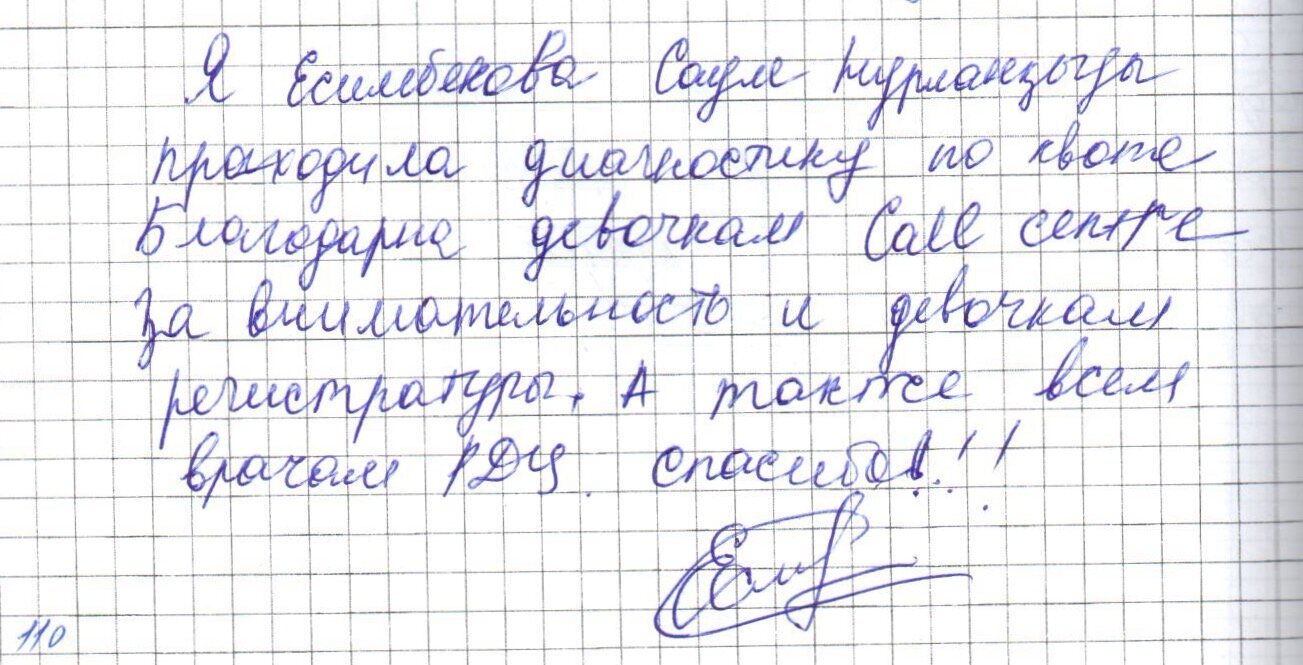 Я Есимбекова Сауле Нурланқызы
проходила диагностику по квоте
Благодарна девочкам Call centre
За внимательность и девочкам
регистратуры. А также всем
врачам РДЦ. спасибо!!!
110